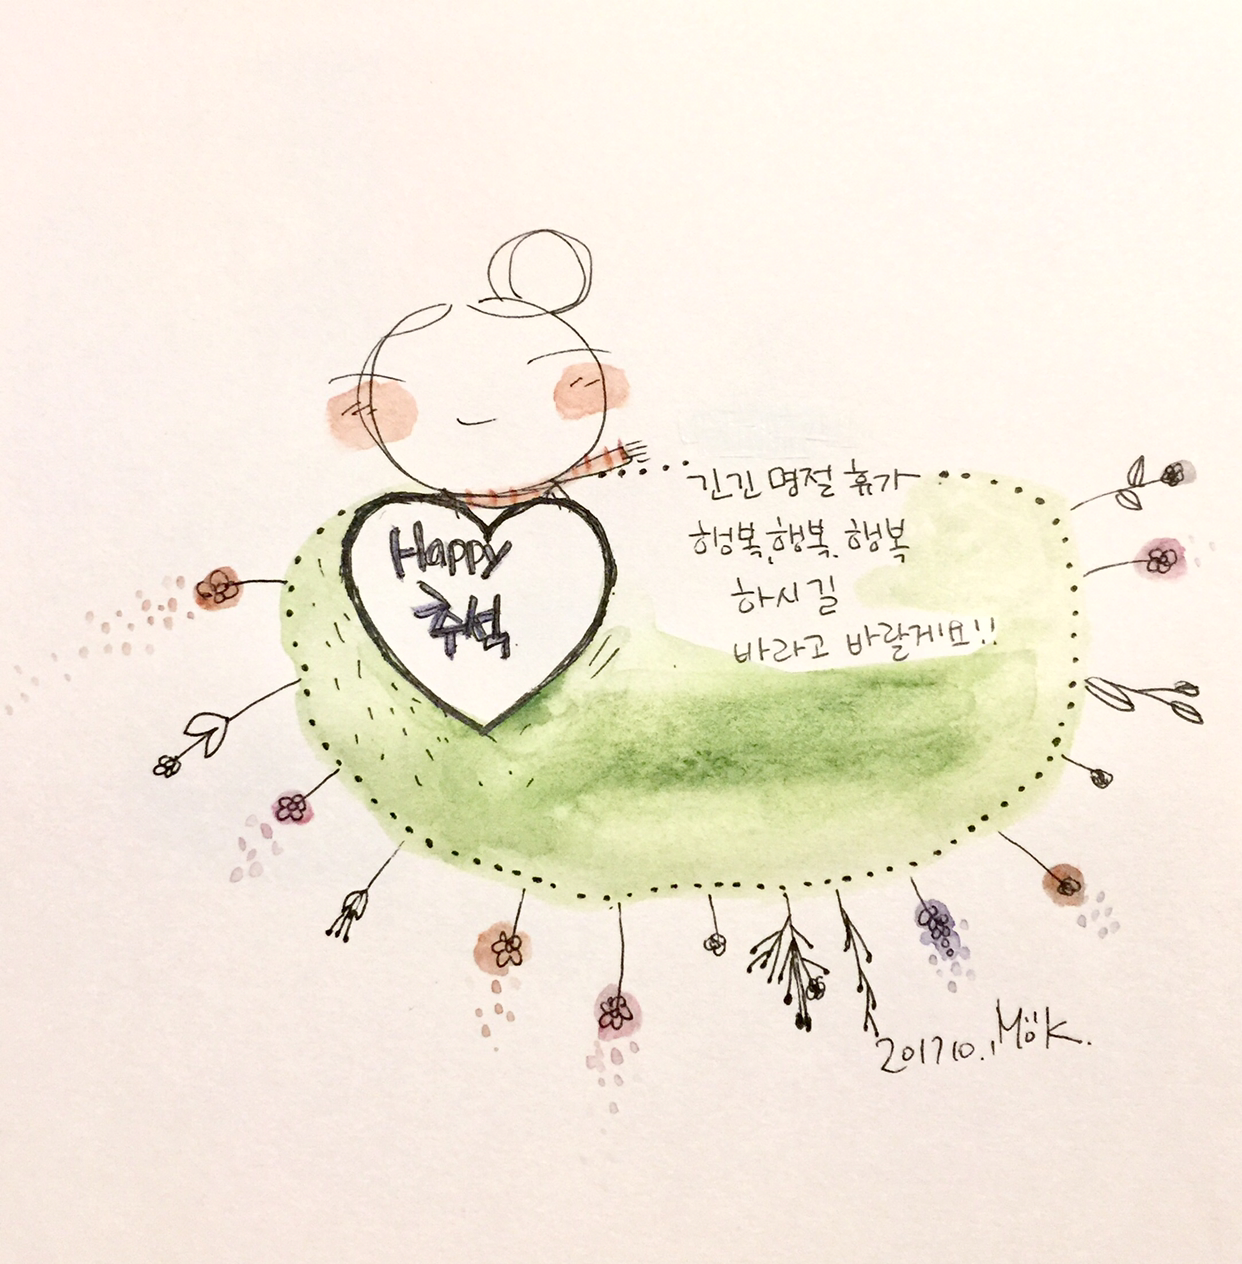 Happy
추석
긴긴 명절 휴가
행복, 행복, 행복
하시길
바라고 바랄게요!!
201710. Mök.